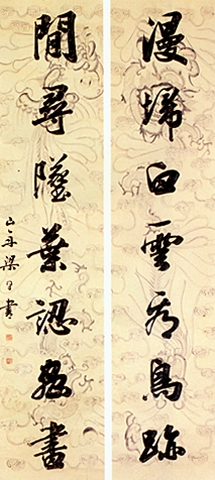 漫埽白雲看鳥跡
間尋墜葉認蟲書
山舟梁同書